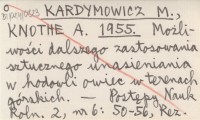 KARDYMOWICZ M.,
KNOTHE A. 1955. Możli-
wości dalszego zastosowania
sztucznego unasieniania
w hodowli owiec w terenach
górskich. — Postępy Nauk
Roln. 2, nr 6: 50-56, Rez.